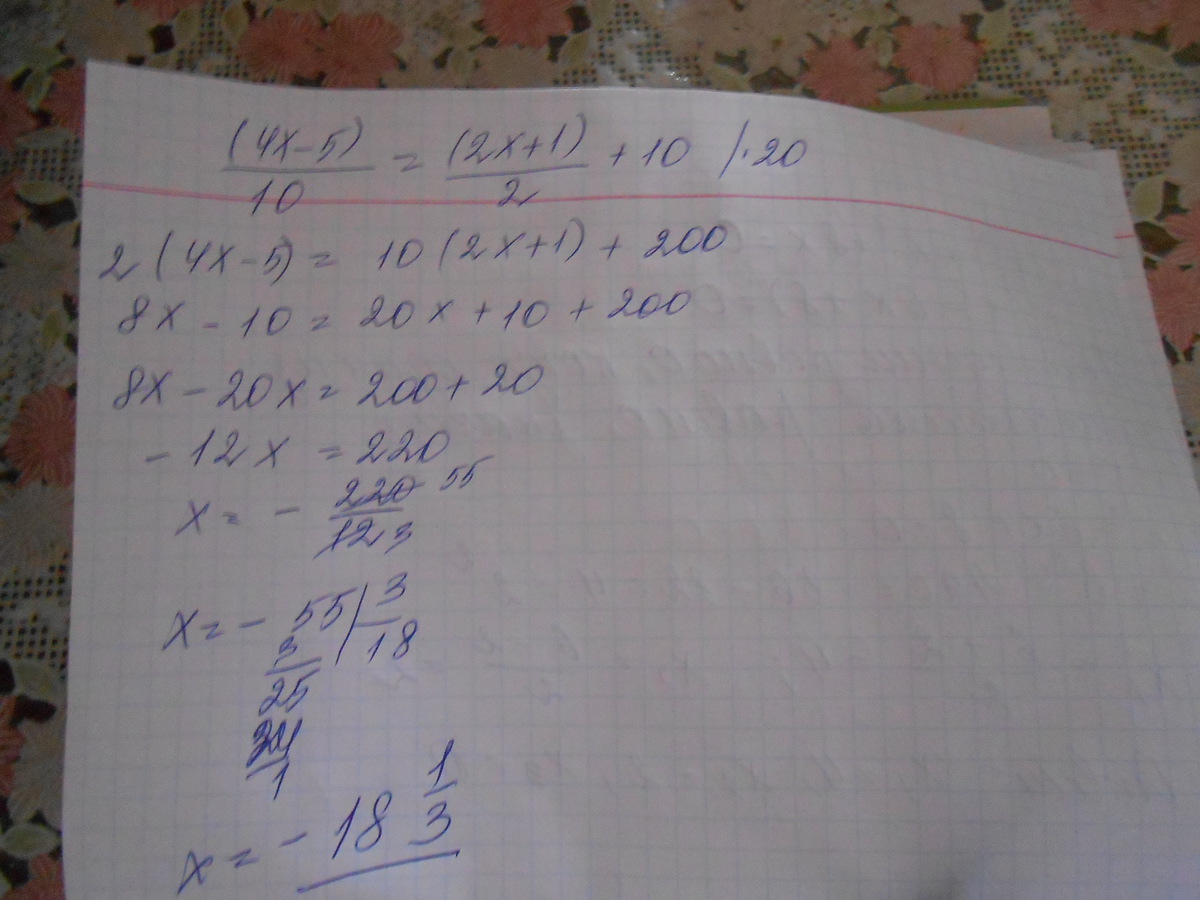 (4x-5)/10 = (2x+1)/2 + 10 /·20
2(4x-5) = 10(2x+1) + 200
8x - 10 = 20x + 10 + 200
8x - 20x = 200 + 20
-12x = 220
x = - 220/12 55 3
x = - 55 | 3
3 18
25
24
1
x = - 18 1/3